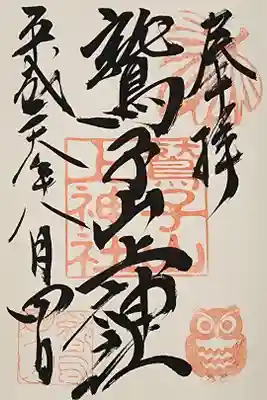 奉拝
鷲子山上神社
平成年八月四日
鷲子山
上神社